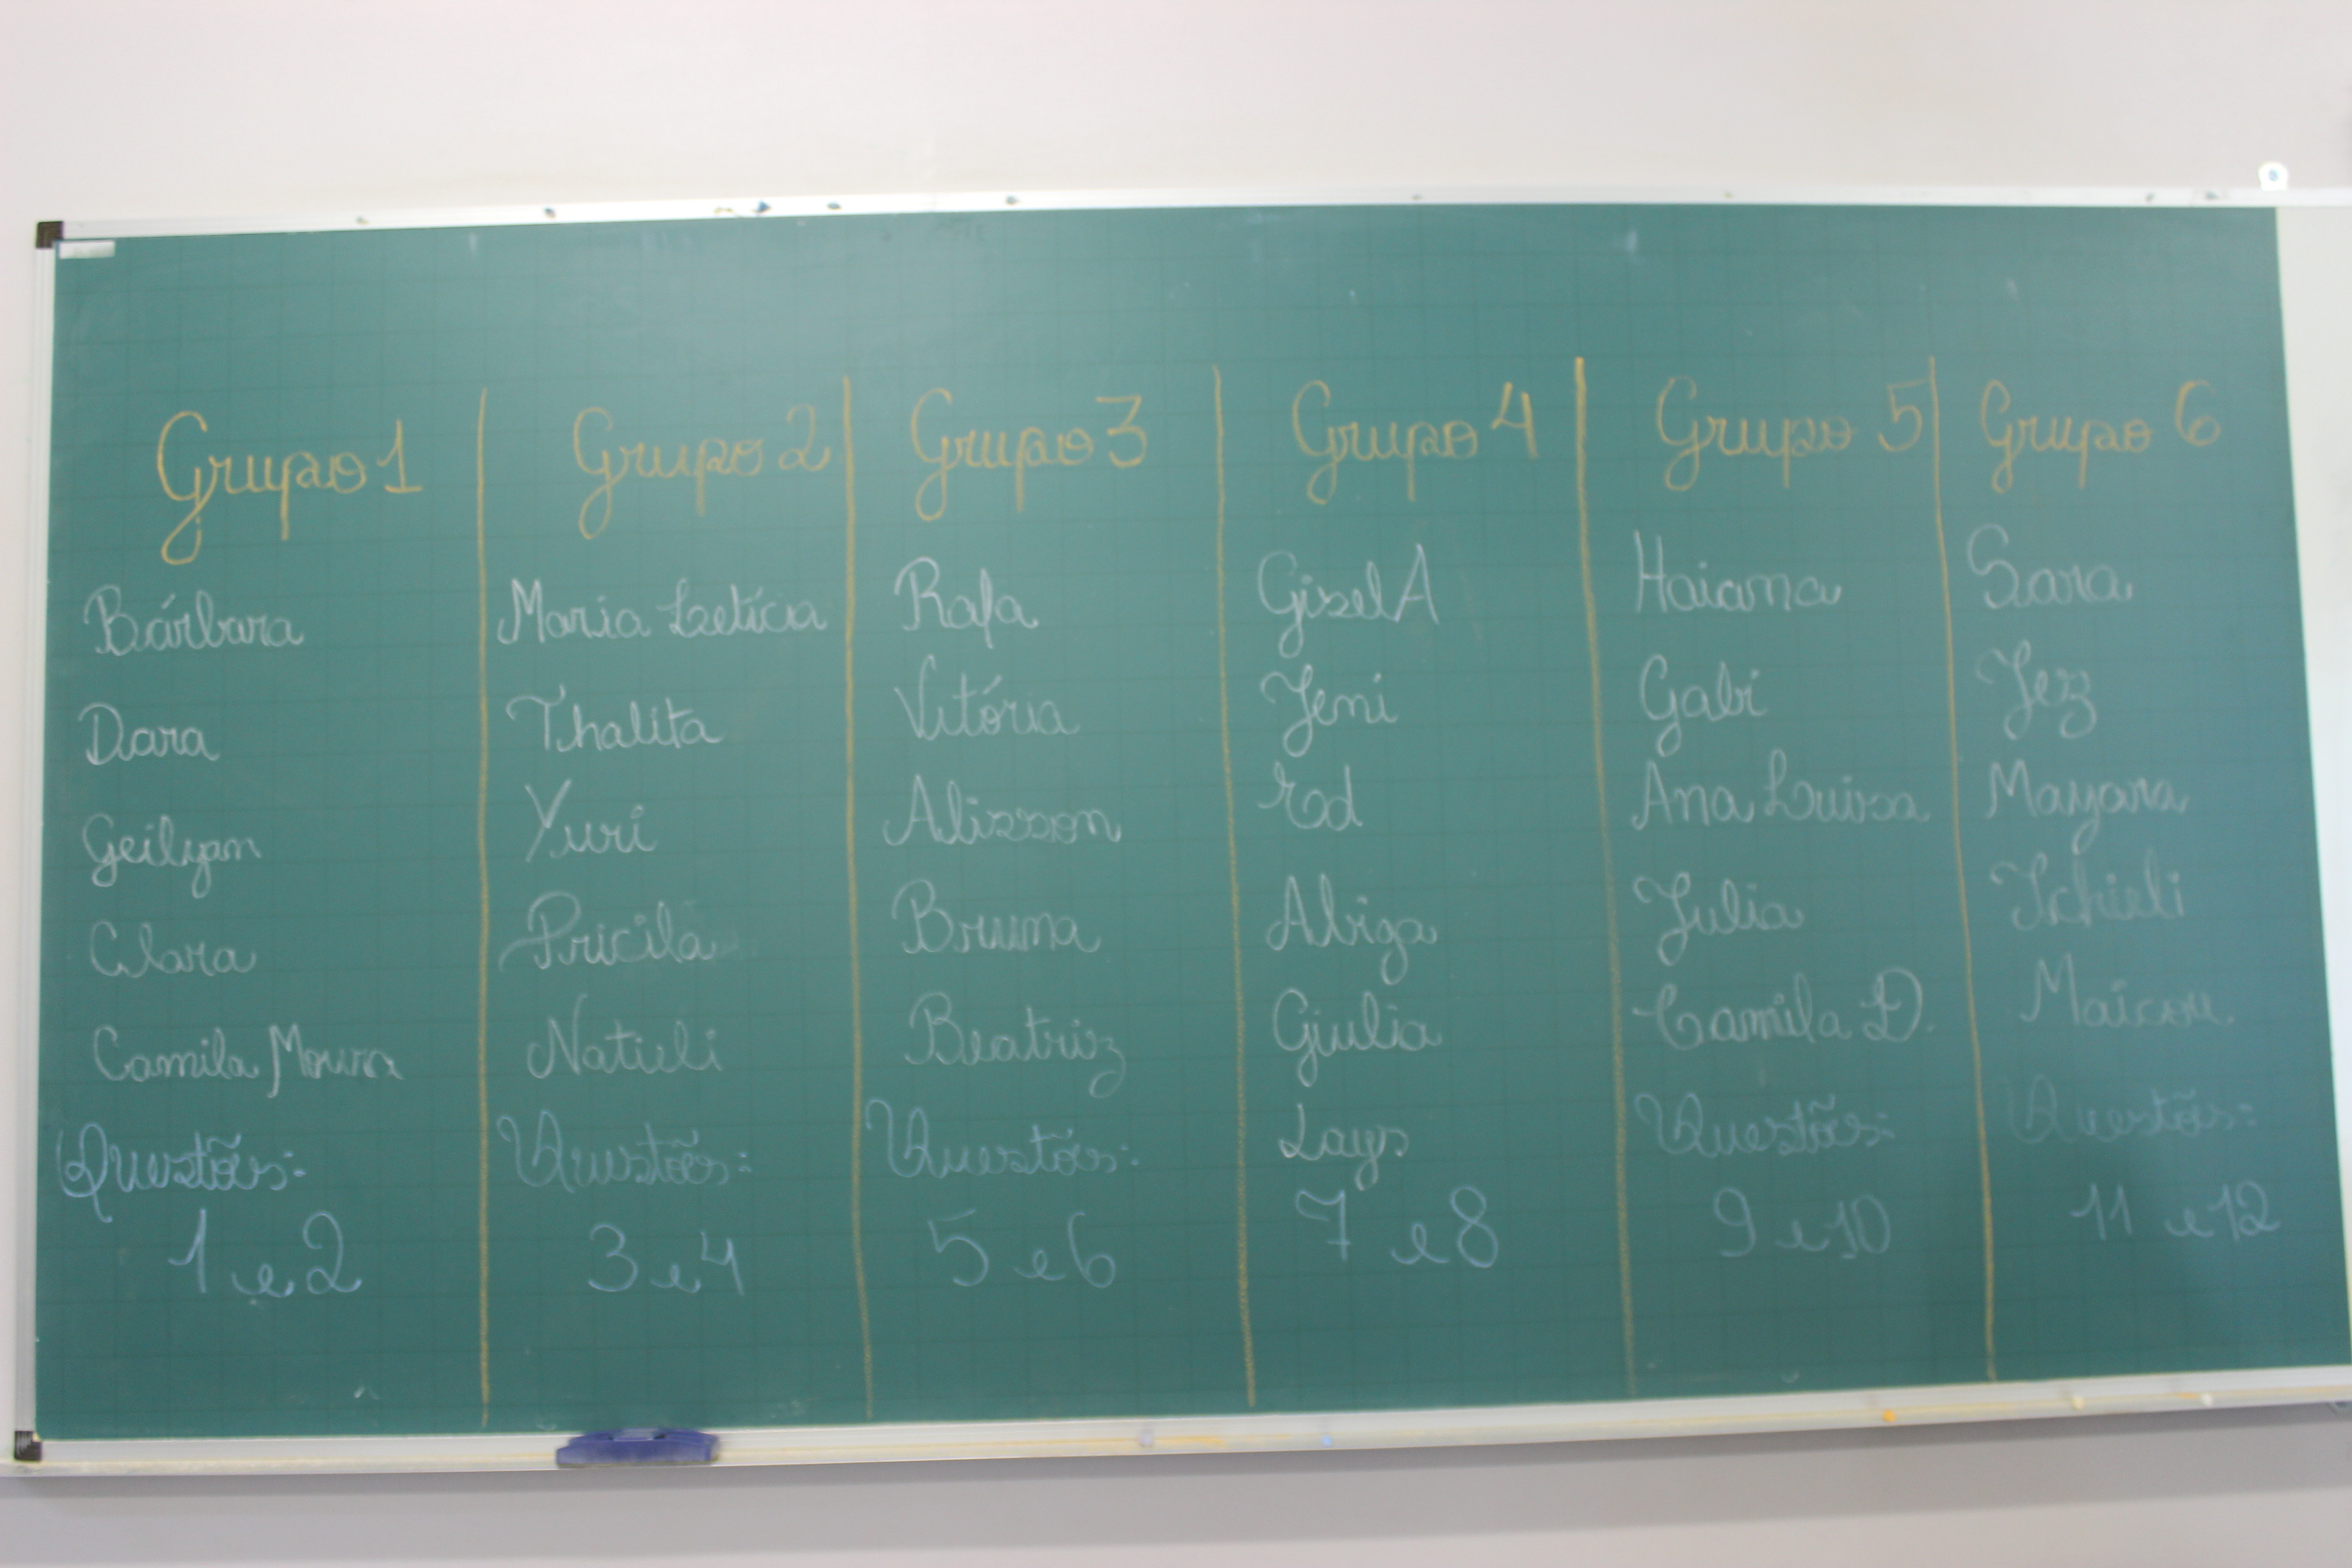 Grupo 1
Bárbara
Dara
Geilyan
Clara
Camila Moura
Questões:
1 e 2
Grupo 2
Maria Letícia
Thalita
Yuri
Pricila
Natieli
Questões:
3 e 4
Grupo 3
Rafa
Vitória
Alisson
Bruna
Beatriz
Questões:
5 e 6
Grupo 4
GiselA
Jeni
Ed
Abiga
Giulia
Lays
7 e 8
Grupo 5
Haiana
Gabi
Ana Luisa
Julia
Camila D.
Questões:
9 e 10
Grupo 6
Sara
Jez
Mayara
Maicon.
Questões:
11 e 12